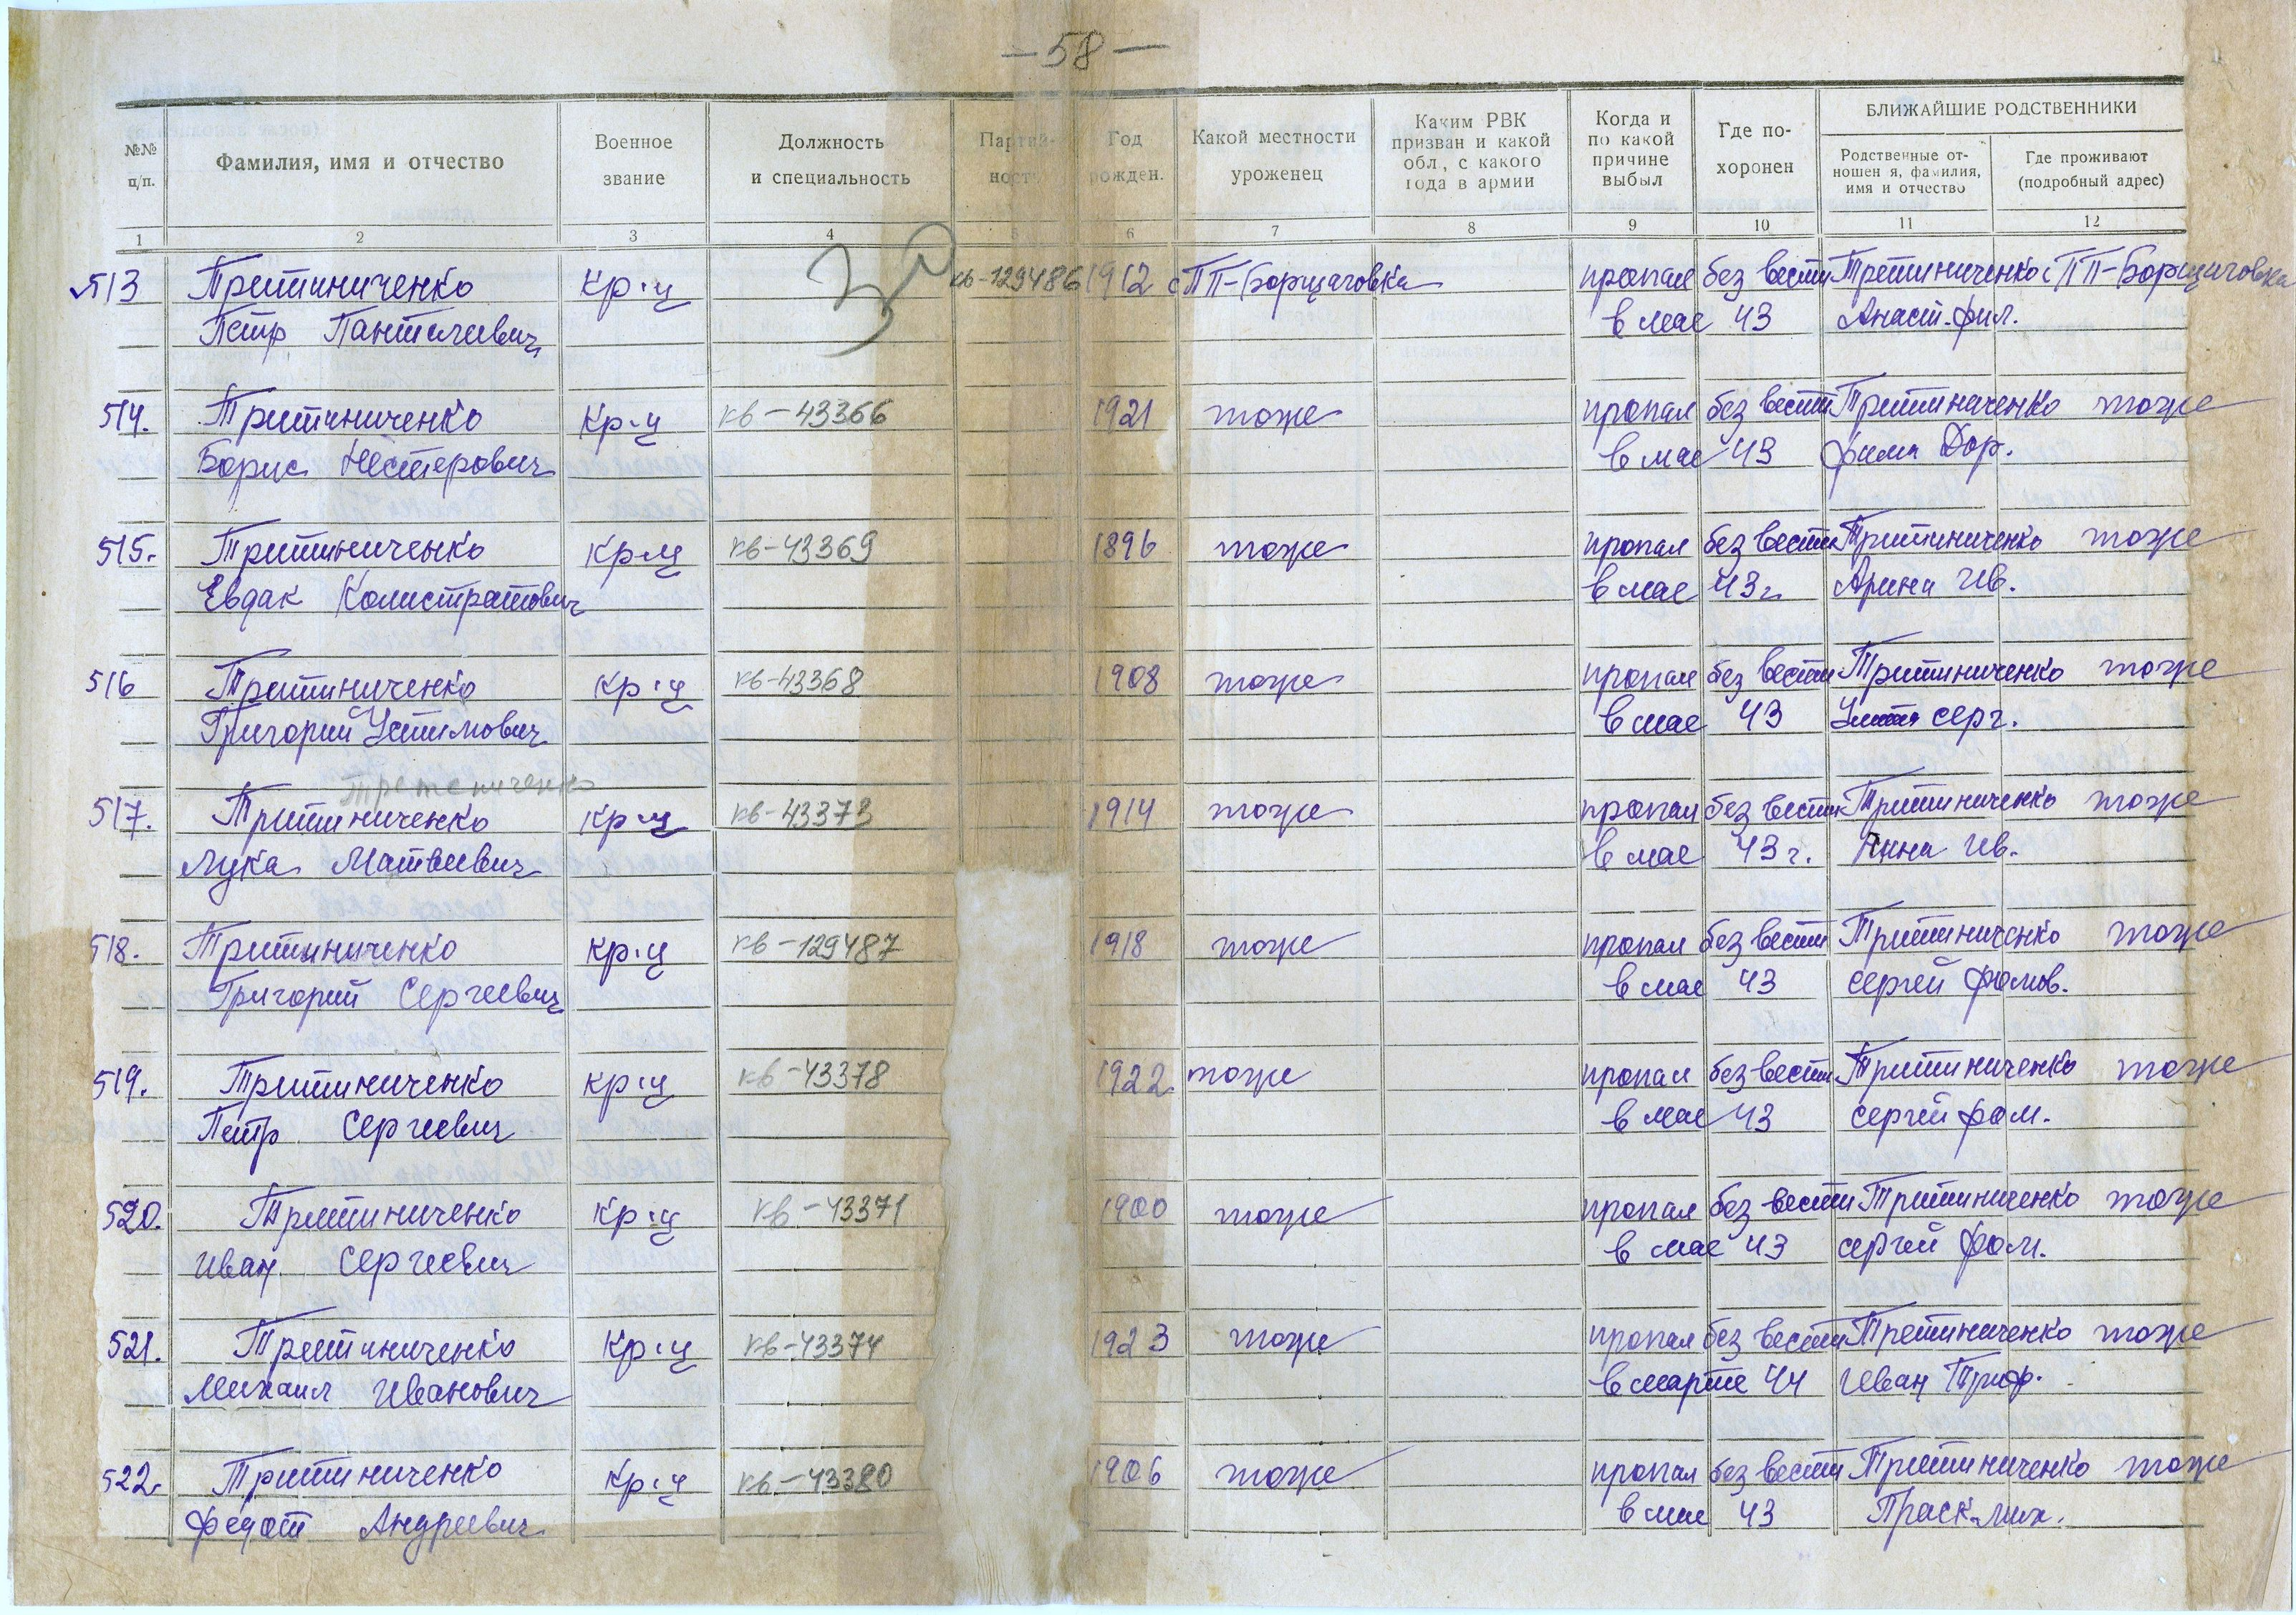 — 58 —
№№ ц/п.
Фамилия, имя и отчество
Военное звание
Должность и специальность
Партий- ность
Год рожден.
Какой местности уроженец
Каким РВК призван и какой обл, с какого года в армии
Когда и по какой причине выбыл
Где по- хоронен
БЛИЖАЙШИЕ РОДСТВЕННИКИ
Родственные от- ношен я, фамилия, имя и отчество
Где проживают (подробный адрес)
1 2 3 4 5 6 7 8 9 10 11 12
513 Третиниченко Кр-ц кв-129486 1912 с ПП-Борщаговка пропал без вести Третиниченко с ПП-Борщаговка
Петр Пантелеевич в мае 43 Анаст. фил.
514. Третиниченко Кр-ц кв-43366 1921 тоже пропал без вести Третиниченко тоже
Борис Нестерович в мае 43 Дор.
515. Третиниченко Кр-ц кв-43369 1896 тоже пропал без вести Третиниченко тоже
Евдак Колистратович в мае 43г Арина Ив.
516 Третиниченко Кр-ц кв-43368 1908 тоже пропал без вести Третиниченко тоже
Григорий Устимович в мае 43 серг.
Третениченко
517. Третиниченко Кр-ц кв-43373 1914 тоже пропал без вести Третиниченко тоже
Лука Матвеевич в мае 43 г. Анна Ив.
518. Третиниченко Кр-ц кв-129487 1918 тоже пропал без вести Третиниченко тоже
Григорий Сергеевич в мае 43 сергей фомов.
519. Третиниченко кр-ц кв-43378 1922 тоже пропал без вести Третиниченко тоже
Петр Сергеевич в мае 43 сергей фом.
520. Третиниченко Кр-ц кв-43371 1900 тоже пропал без вести Третиниченко тоже
Иван Сергеевич в мае 43 сергей фом.
521. Третиниченко Кр-ц кв-43374 1923 тоже пропал без вести Третиниченко тоже
Михаил Иванович в марте 44 Иван Триф.
522. Третиниченко Кр-ц кв-43380 1906 тоже пропал без вести Третиниченко тоже
Федот Андреевич в мае 43 Праск. мих.